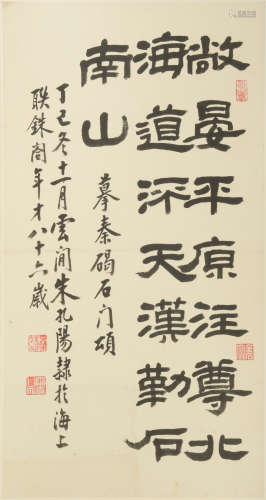 敞晏平原注尊北
海道深天漢勒石
南山
摹秦碣石门頌
丁巳冬十一月雲间朱孔陽隸於海上
聯銖阁年才八十六歲